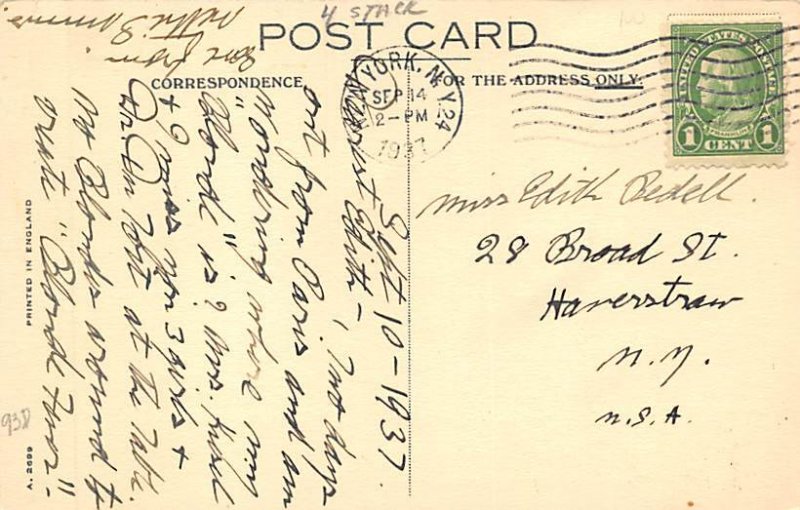 4 STACK
POST CARD
CORRESPONDENCE
FOR THE ADDRESS ONLY:
NEW YORK, N.Y. 24
SEP 14
2-PM
1937
UNITED STATES POSTAGE
FRANKLIN
1 CENT 1
Sept 10-1937.
Dearest Edith-
2 days
out from Paris and am
wondering where my
"Blond" is? Mrs.
+ I miss you 3 girls +
Dr. at the table.
No Blonds around to
"Blond
Love from
Nettie B
Miss Edith Bedell.
28 Broad St.
Haverstraw
N.Y.
U.S.A.
PRINTED IN ENGLAND
A. 2699